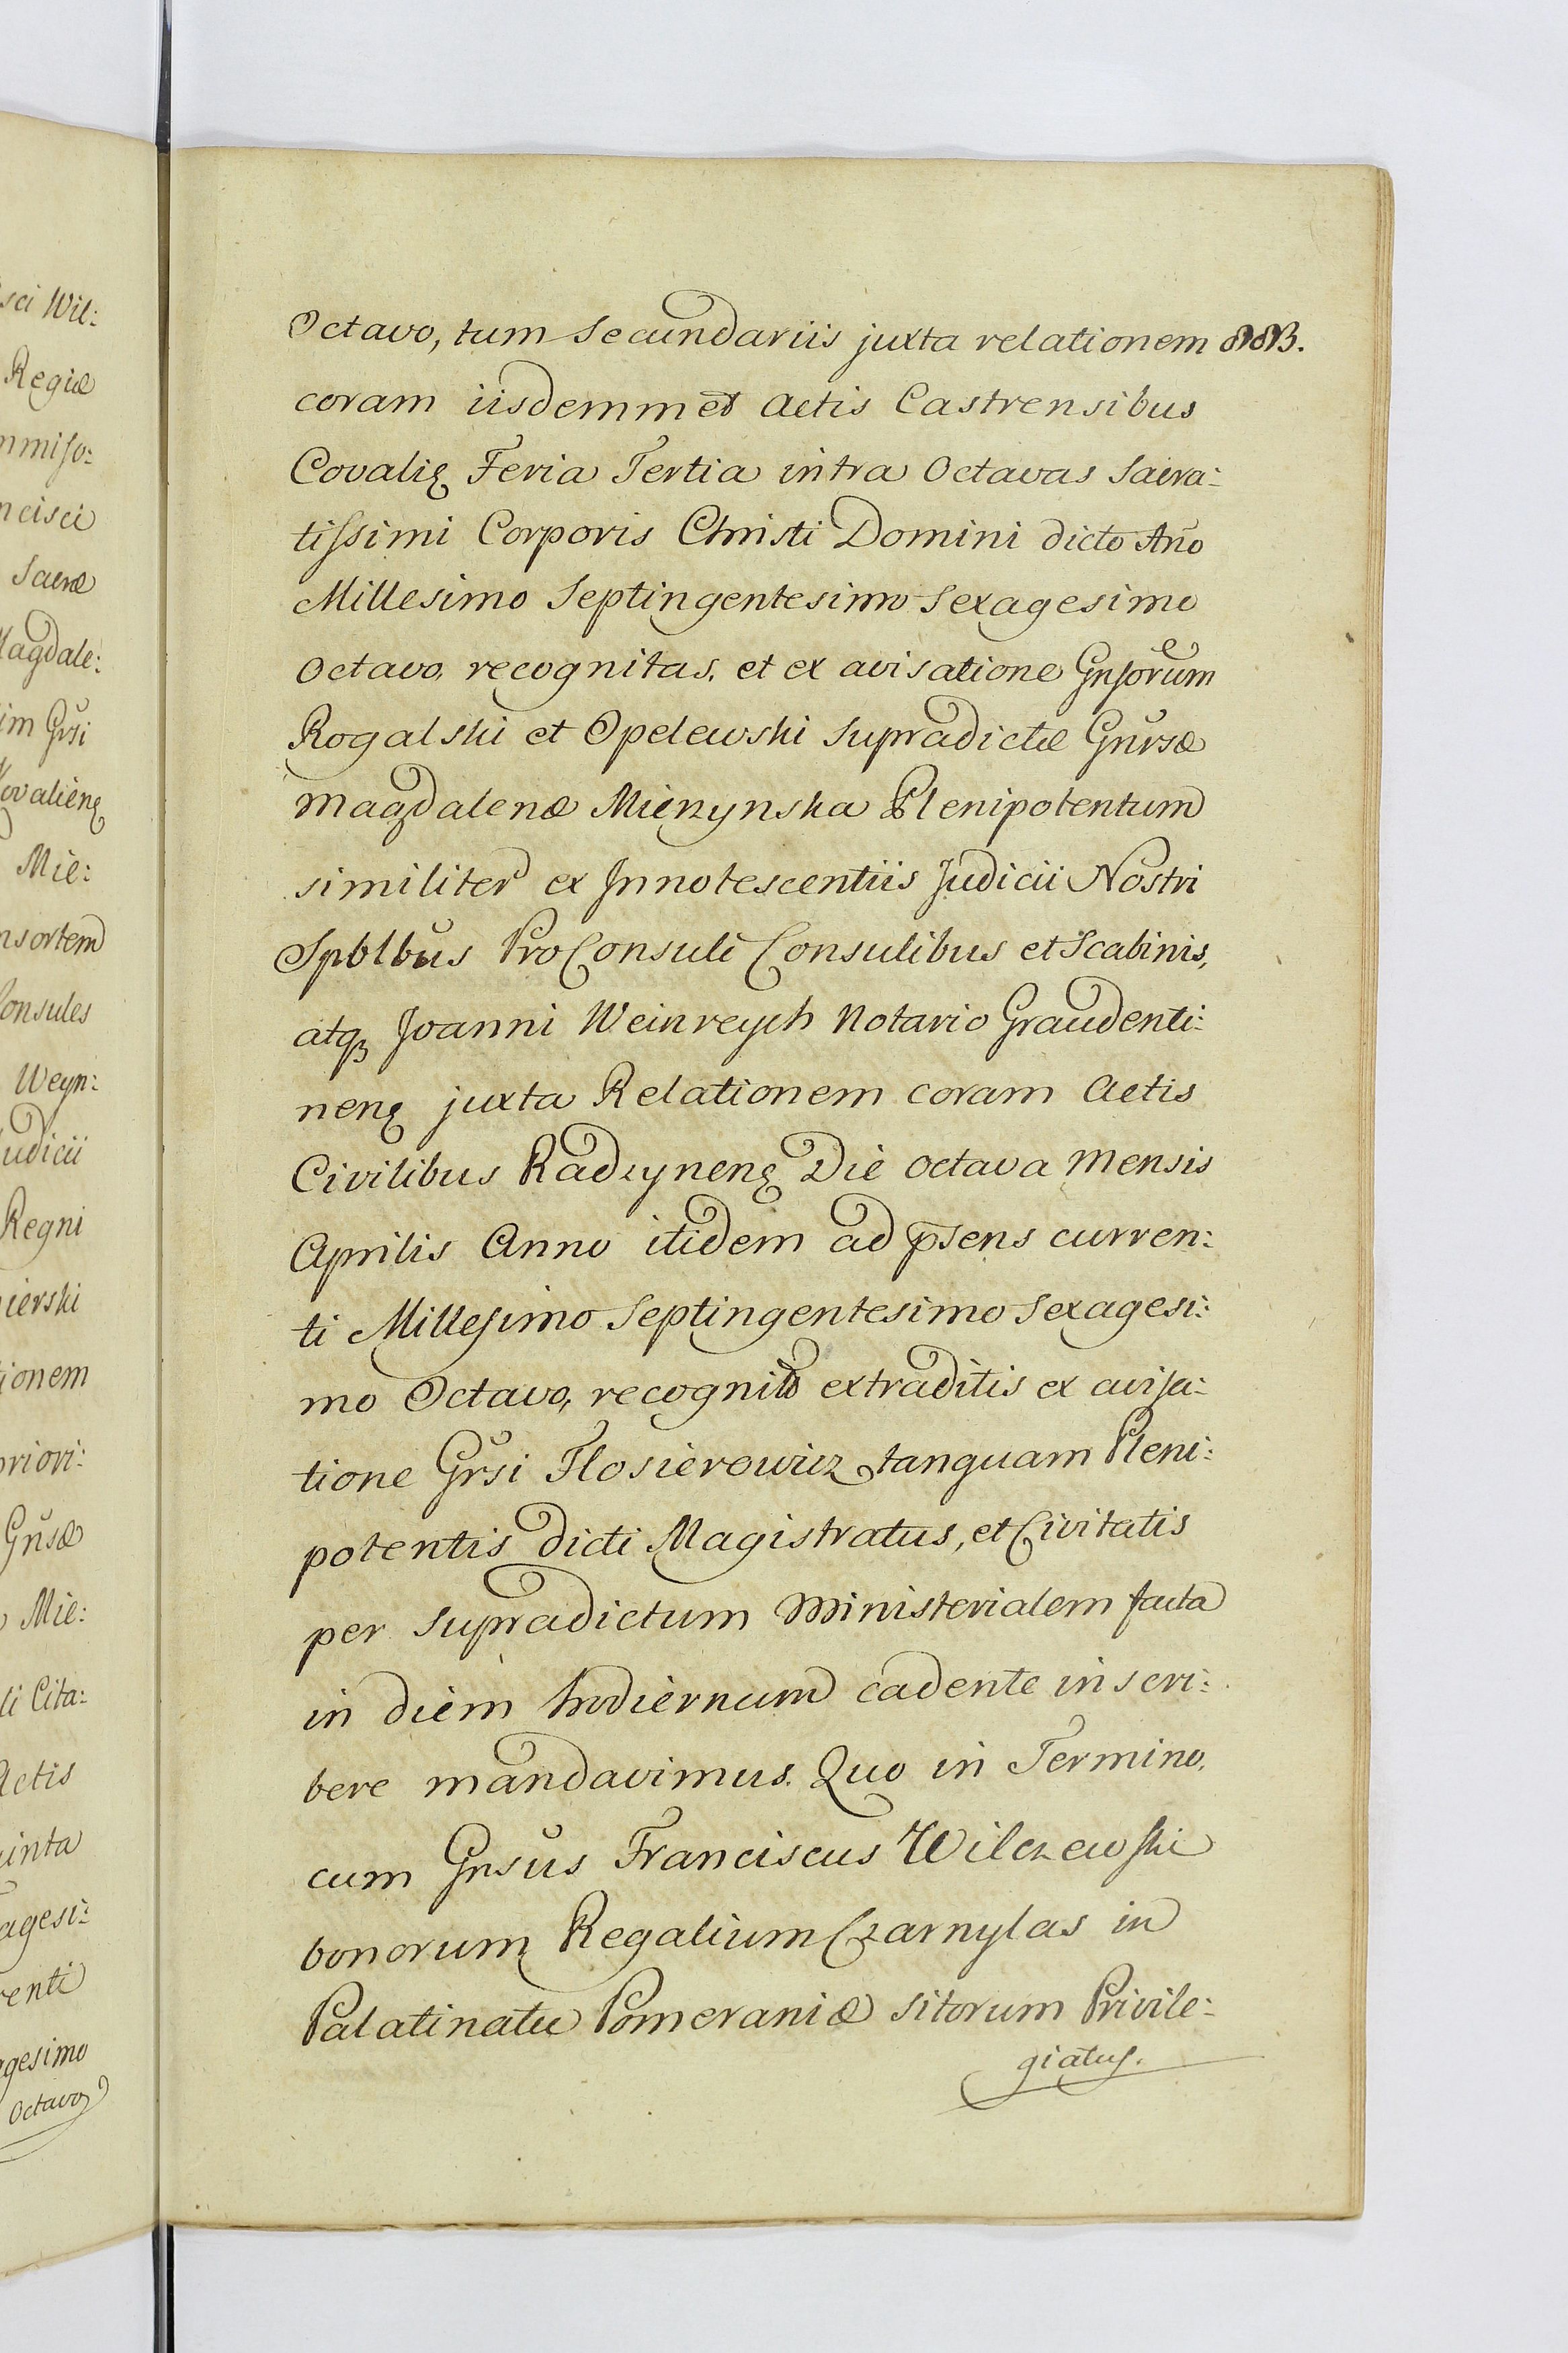 sci Wil:
Regiæ
mmiſo:
ncisci
Sacræ
Magdale:
im Grsi
Kovalienę
Mie:
nsortem
Consules
Weyn:
Judicii
Regni
ierski
tionem
priori:
Gnsæ
Mie:
li Cita:
Actis
uinta
agesi:
renti
agesimo
Octavo
Octavo, tum Secundariis juxta relationem
coram iisdemmet Actis Castrensibus
Covalię Feria Tertia intra Octavas Sacra:
tiſsimi Corporis Christi Domini dicto Año
Millesimo Septingentesimo Sexagesimo
Octavo, recognitas, et ex avisatione Gnſorum
Rogalski et Opelewski Supradictæ Gnrsæ
Magdalenæ Mierzynska Plenipotentum
similiter ex Innotescentiis Judicii Nostri
Spblbus ProConsuli Consulibus et Scabinis,
atqȝ Joanni Weinreych Notario Graudenti:
nenę juxta Relationem coram Actis
Civilibus Radzynenę Die Octava Mensis
Aprilis Anno itidem ad p̄sens curren:
ti Milleſimo Septingentesimo Sexagesi:
mo Octavo, recognitis extraditis ex aviſa:
tione Grsi Flosierowicz tanquam Pleni:
potentis dicti Magistratus, et Civitatis
per Supradictum Ministerialem facta
in diem hodiernum cadente inscri:
bere mandavimus. Quo in Termino,
cum Gnsus Franciscus Wilczewſki
bonorum Regalium Czarnylas in
Palatinatu Pomeraniæ sitorum Privile:
giatuſ.